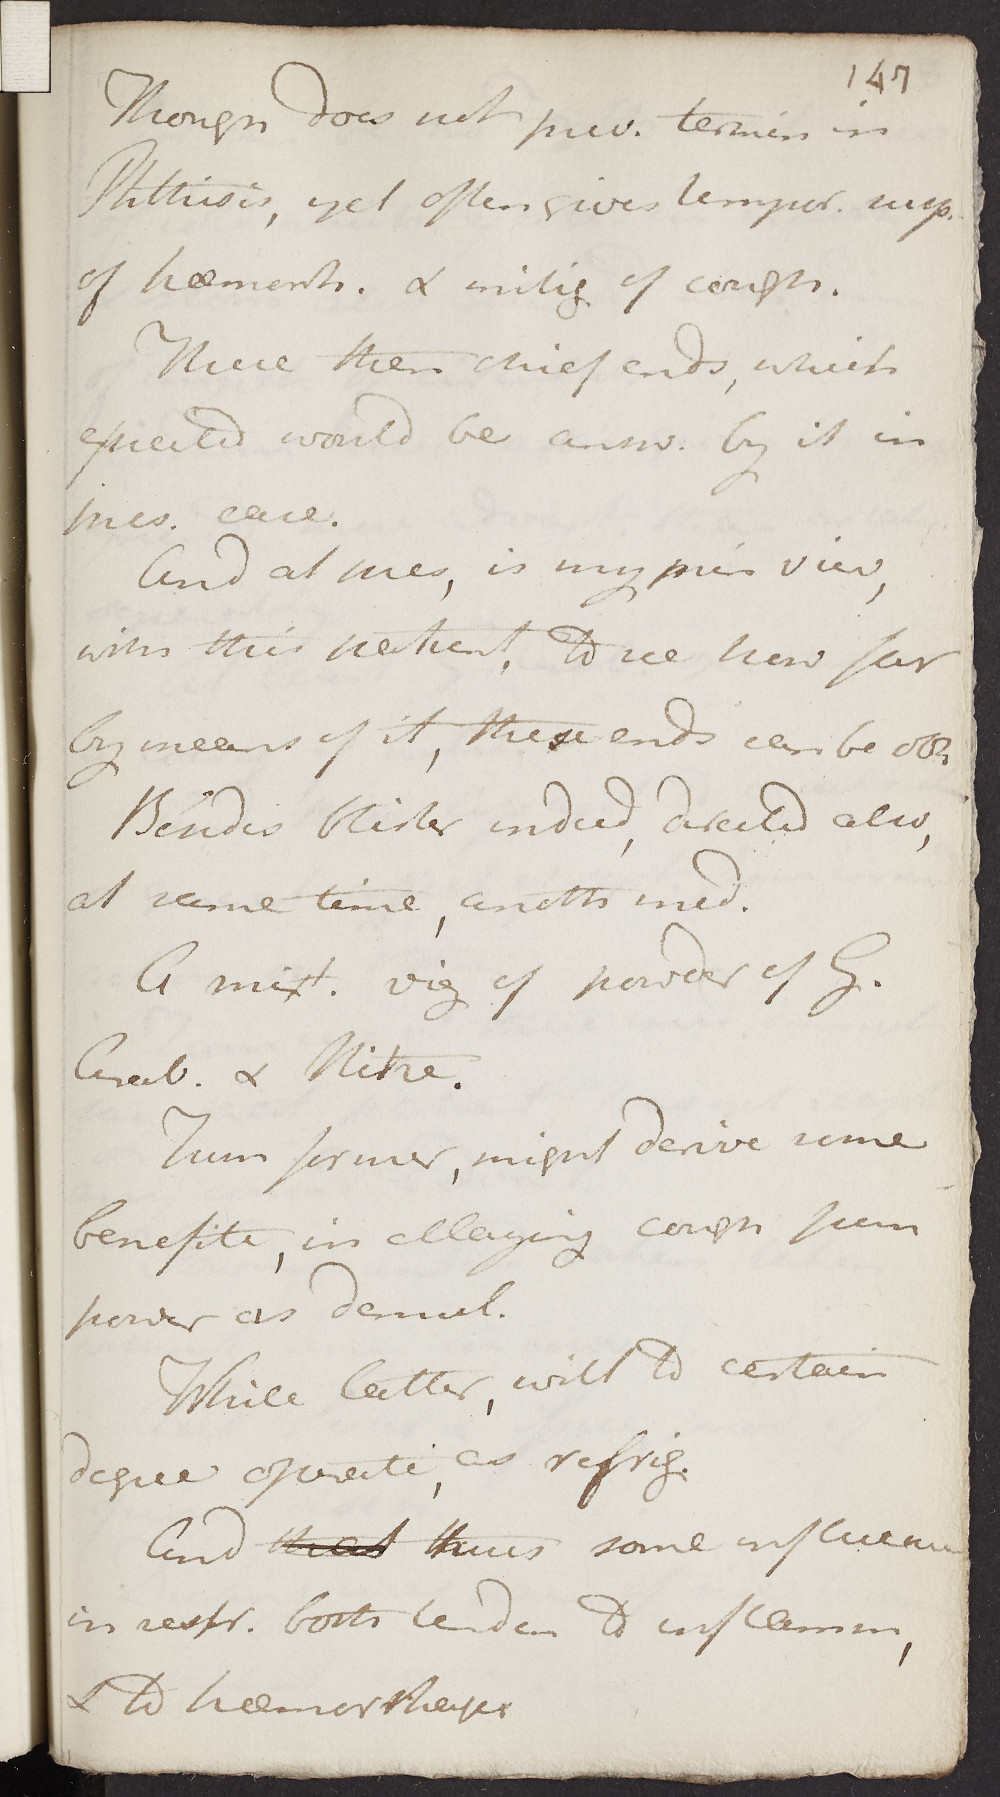 147
Though does not prev. termin in
Phthisis, yet often gives tempor. susp.
of hæmorrh. & mitig of cough.
These then chief ends, which
expected would be answ. by it in
pres. case.
And at pres, is my prin view,
with this patient, to see how far
by means of it, these ends can be obt
Besides blister indeed, directed also,
at same time, anoth med.
A mixt. viz of powder of G.
Arab. & Nitre.
From former, might derive some
benefite, in allaying cough from
power as demul.
While latter, will to certain
degree operate, as refrig.
And that thus some influence
in restr. both tenden to inflamm,
& to hæmorrhages